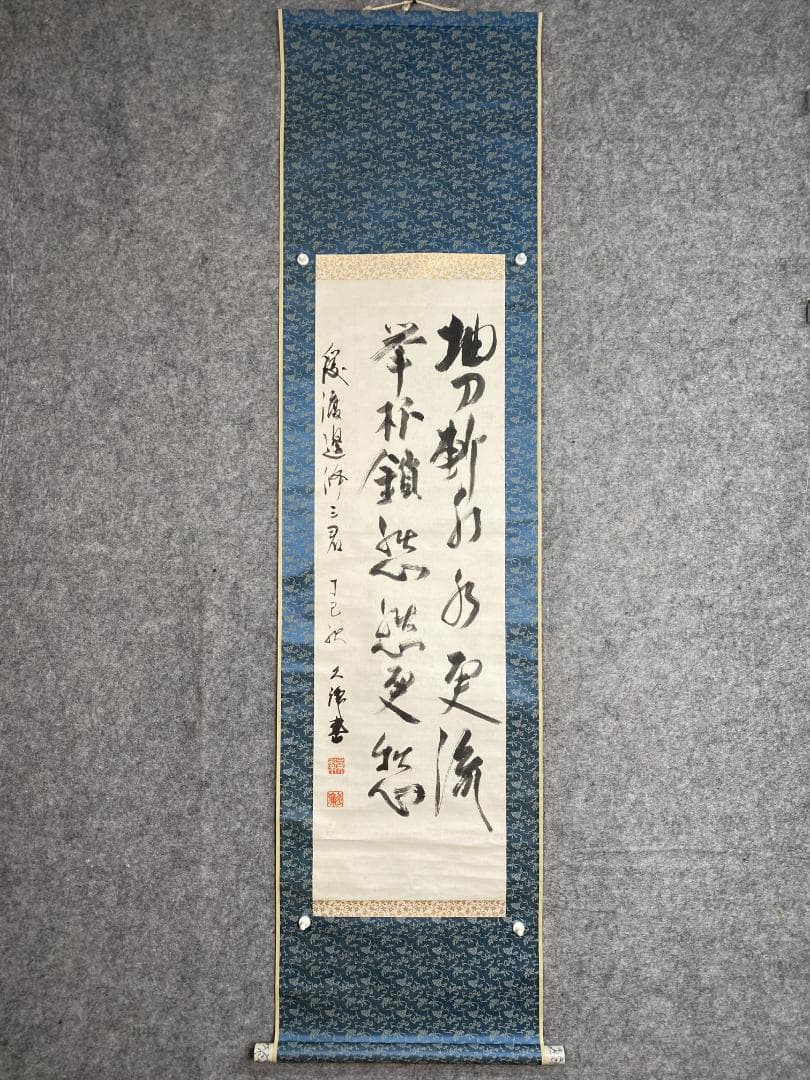 抽刀斬水水更流
举杯鎖愁愁更愁
渡邊 三君 丁巳秋 書